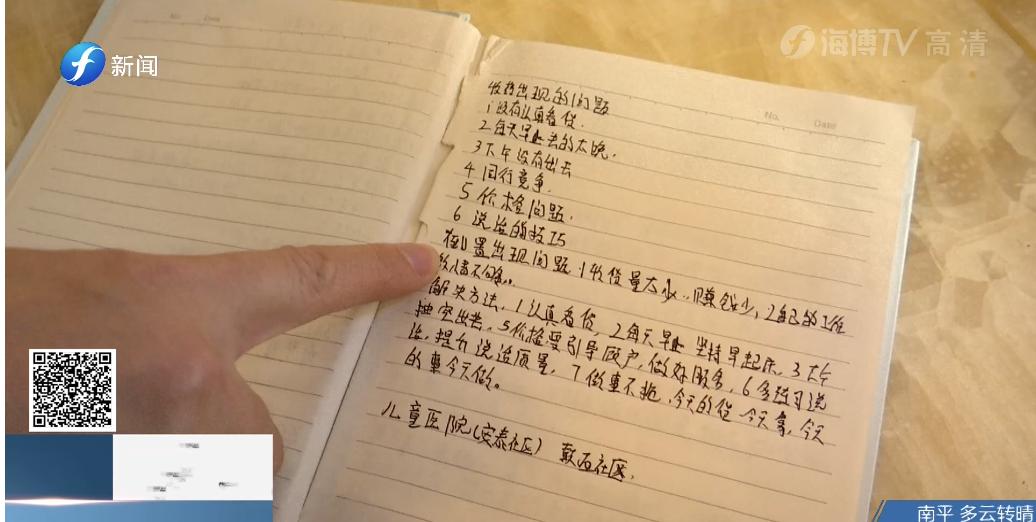 新闻
海博TV 高清
No. Date
No. Date
收移出现的问题
1没有认真看货.
2每天早上去的太晚.
3下午没有出去
4同行竞争.
5价格问题.
6说话的技巧
出现问题 1收货量太少..赚钱少,2自己的工作
收入不
解决方法.1认真看货.2每天早上坚持早起床.3下午
抽空出去.5价格要引导顾户,做好服务,6多练习说
话,提升说话质量,7做事不拖,今天的货今天拿,今天
的事今天做。
儿童医院(安泰社区) 软石社区,
南平 多云转晴